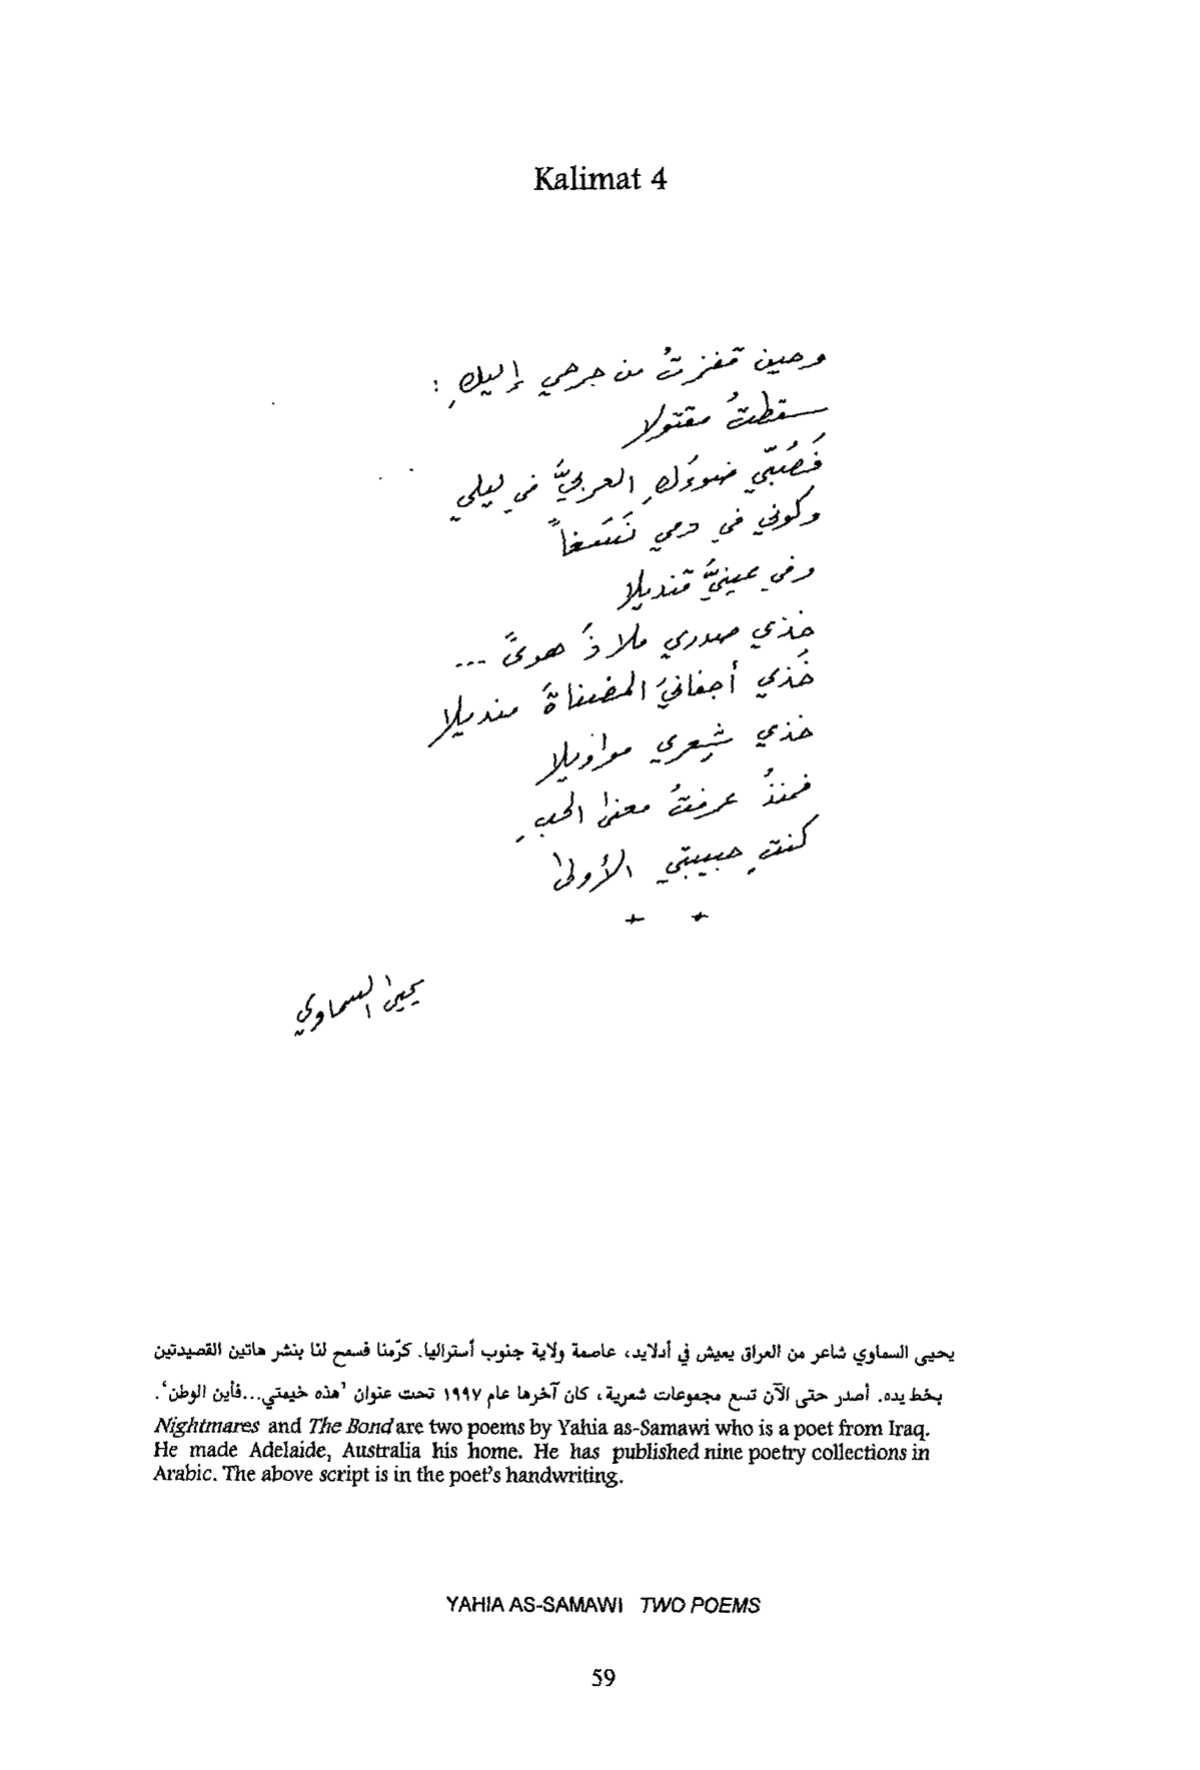 Kalimat 4
وحين قفزتُ من جرحي إليكِ :
سقطتُ مقتولا
فَصُبّي ضوءَكِ العربيَّ في ليلي
وكوني في دمي نَسَغاً
وفي عينيَّ قنديلا
خذي صدري ملاذَ هوىً ...
خُذي أجفانيَ المضناةَ منديلا
خذي شِعري مواويلا
فمنذُ عرفتُ معنى الحبِ
كنتِ حبيبتي الأولى
+ +
يحيى السماوي
يحيى السماوي شاعر من العراق يعيش في أدلايد، عاصمة ولاية جنوب أستراليا. كرّمنا فسمح لنا بنشر هاتين القصيدتين
بخط يده. أصدر حتى الآن تسع مجموعات شعرية، كان آخرها عام ١٩٩٧ تحت عنوان ’هذه خيمتي...فأين الوطن‘.
Nightmares and The Bond are two poems by Yahia as-Samawi who is a poet from Iraq.
He made Adelaide, Australia his home. He has published nine poetry collections in
Arabic. The above script is in the poet's handwriting.
YAHIA AS-SAMAWI TWO POEMS
59